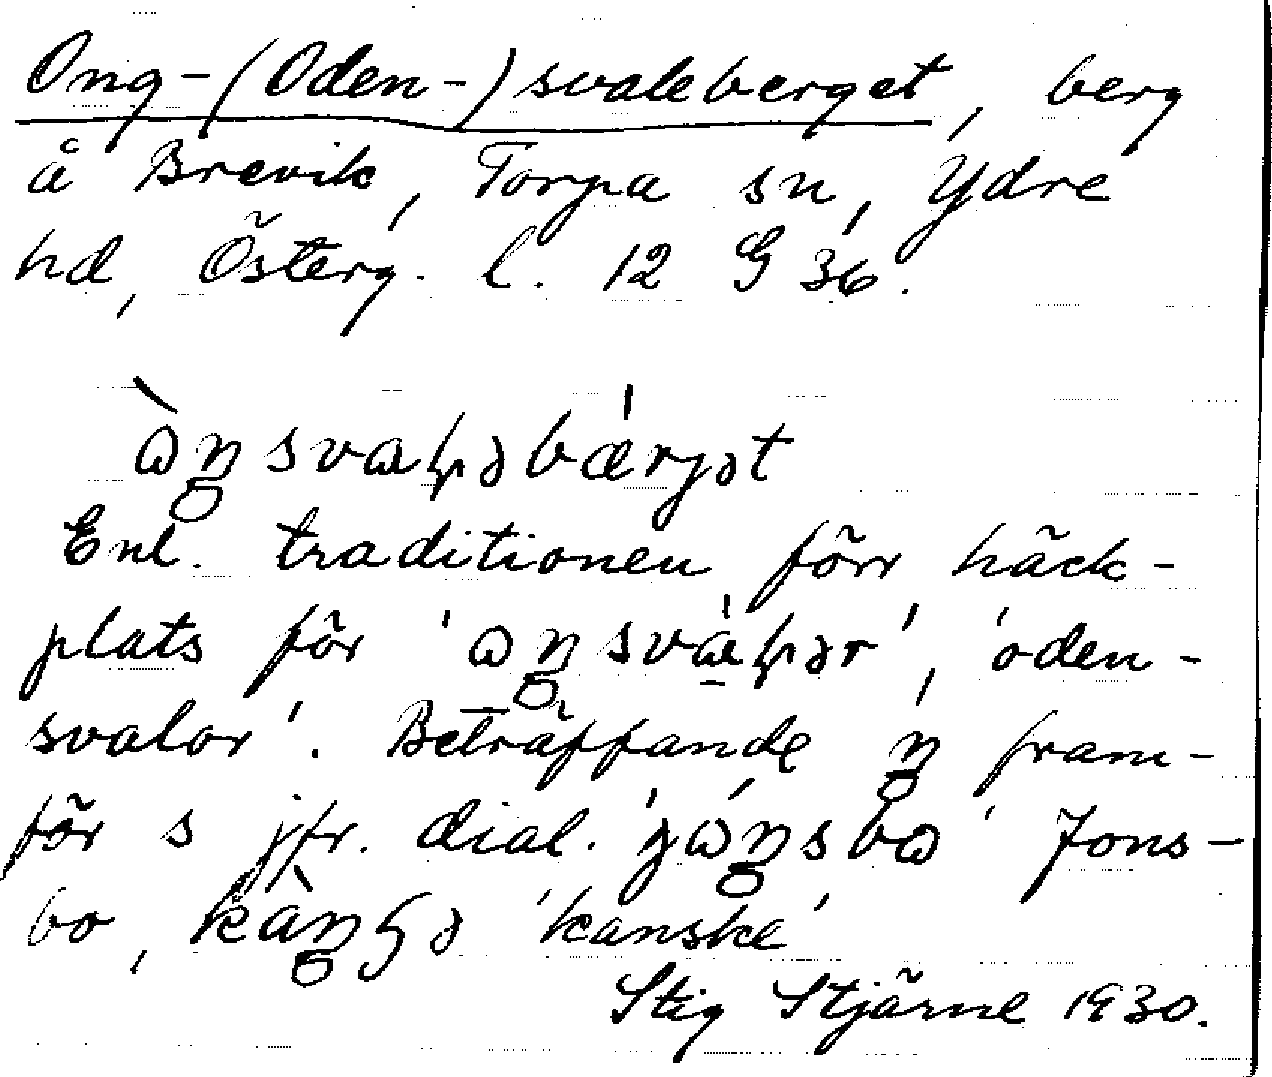 Ong-(Oden-)svaleberget, berg
å Brevik, Torpa sn, Ydre
hd, Österg. l. 12 G 36.
Enl. traditionen förr häck-
plats för ', 'oden-
svalor'. Beträffande ŋ fram-
för s jfr. dial. Jons-
bo, 'kanske'
Stig Stjärne 1930.